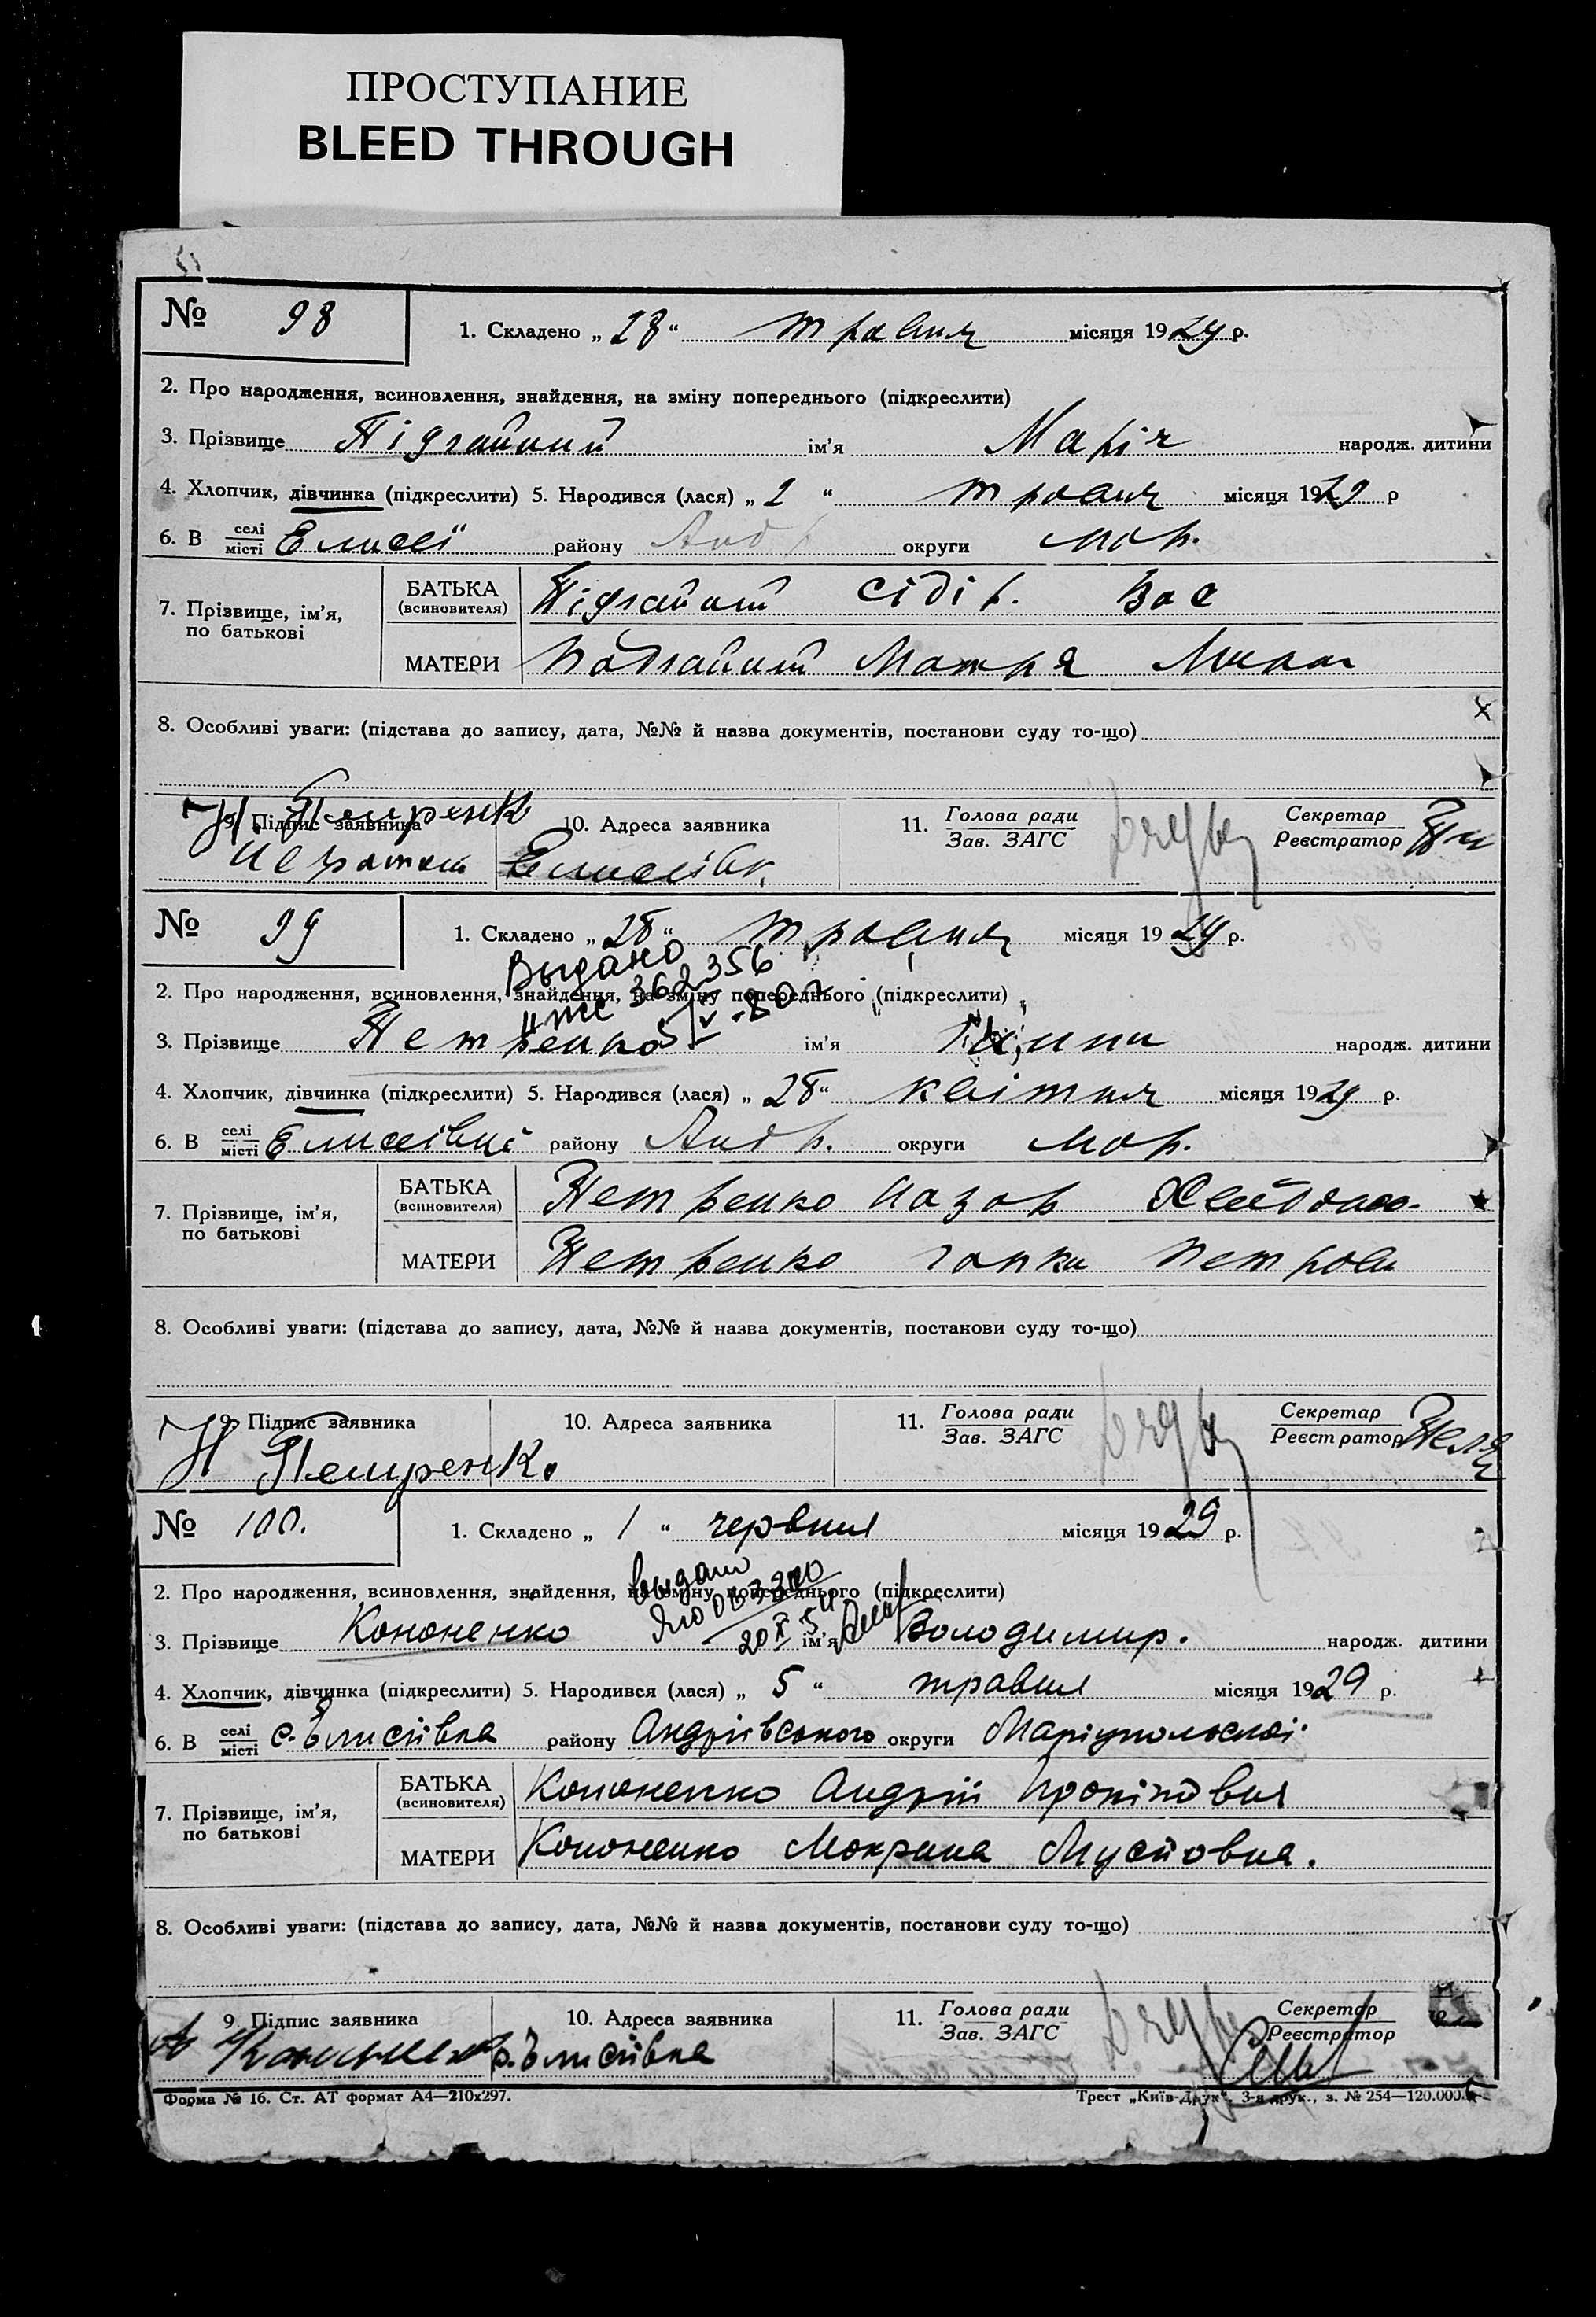 ПРОСТУПАНИЕ
BLEED THROUGH
№ 98
1. Складено „ 28 “ травня місяця 1929 р.
2. Про народження, всиновлення, знайдення, на зміну попереднього (підкреслити)
3. Прізвище Підгайний ім'я Марія народж. дитини
4. Хлопчик, дівчинка (підкреслити) 5. Народився (лася) „ 2 “ травня місяця 1929 р
6. В селі місті району Андр округи Мар.
7. Прізвище, ім'я, по батькові
БАТЬКА (всиновителя) Підгайний Сідір. Вас
МАТЕРИ Мотря
8. Особливі уваги: (підстава до запису, дата, №№ й назва документів, постанови суду то-що)
9. Підпис заявника
10. Адреса заявника
11. Голова ради Зав. ЗАГС
Секретар Реєстратор
Н. Петренк
неграмот Елисеївк.
№ 99
1. Складено „ 28 “ травня місяця 1929 р.
Выдано
362356
2. Про народження, всиновлення, знайдення, на зміну попереднього (підкреслити)
3. Прізвище Петренко ім'я народж. дитини
4. Хлопчик, дівчинка (підкреслити) 5. Народився (лася) „ 28 “ квітня місяця 1929 р.
6. В селі місті Елисеївці району Андр. округи Мар.
7. Прізвище, ім'я, по батькові
БАТЬКА (всиновителя) Петренко Назар
МАТЕРИ Петренко Гапка Петров
8. Особливі уваги: (підстава до запису, дата, №№ й назва документів, постанови суду то-що)
9. Підпис заявника
10. Адреса заявника
11. Голова ради Зав. ЗАГС
Секретар Реєстратор
Н Петренко
№ 100.
1. Складено „ 1 “ червня місяця 1929 р.
Выдано
2. Про народження, всиновлення, знайдення, на зміну попереднього (підкреслити)
3. Прізвище Кононенко ім'я Володимир. народж. дитини
4. Хлопчик, дівчинка (підкреслити) 5. Народився (лася) „ 5 “ травня місяця 1929 р.
6. В селі місті с. Елисіївка району Андріївського округи Маріупольської
7. Прізвище, ім'я, по батькові
БАТЬКА (всиновителя) Кононенко Андрій
МАТЕРИ Кононенко Мокрина
8. Особливі уваги: (підстава до запису, дата, №№ й назва документів, постанови суду то-що)
9 Підпис заявника
10. Адреса заявника
11. Голова ради Зав. ЗАГС
Секретар Реєстратор
с. Елисіївка
Форма № 16. Ст. АТ формат А4—210х297.
Трест „Київ-Друк“, 3-я друк., з. № 254—120.000.